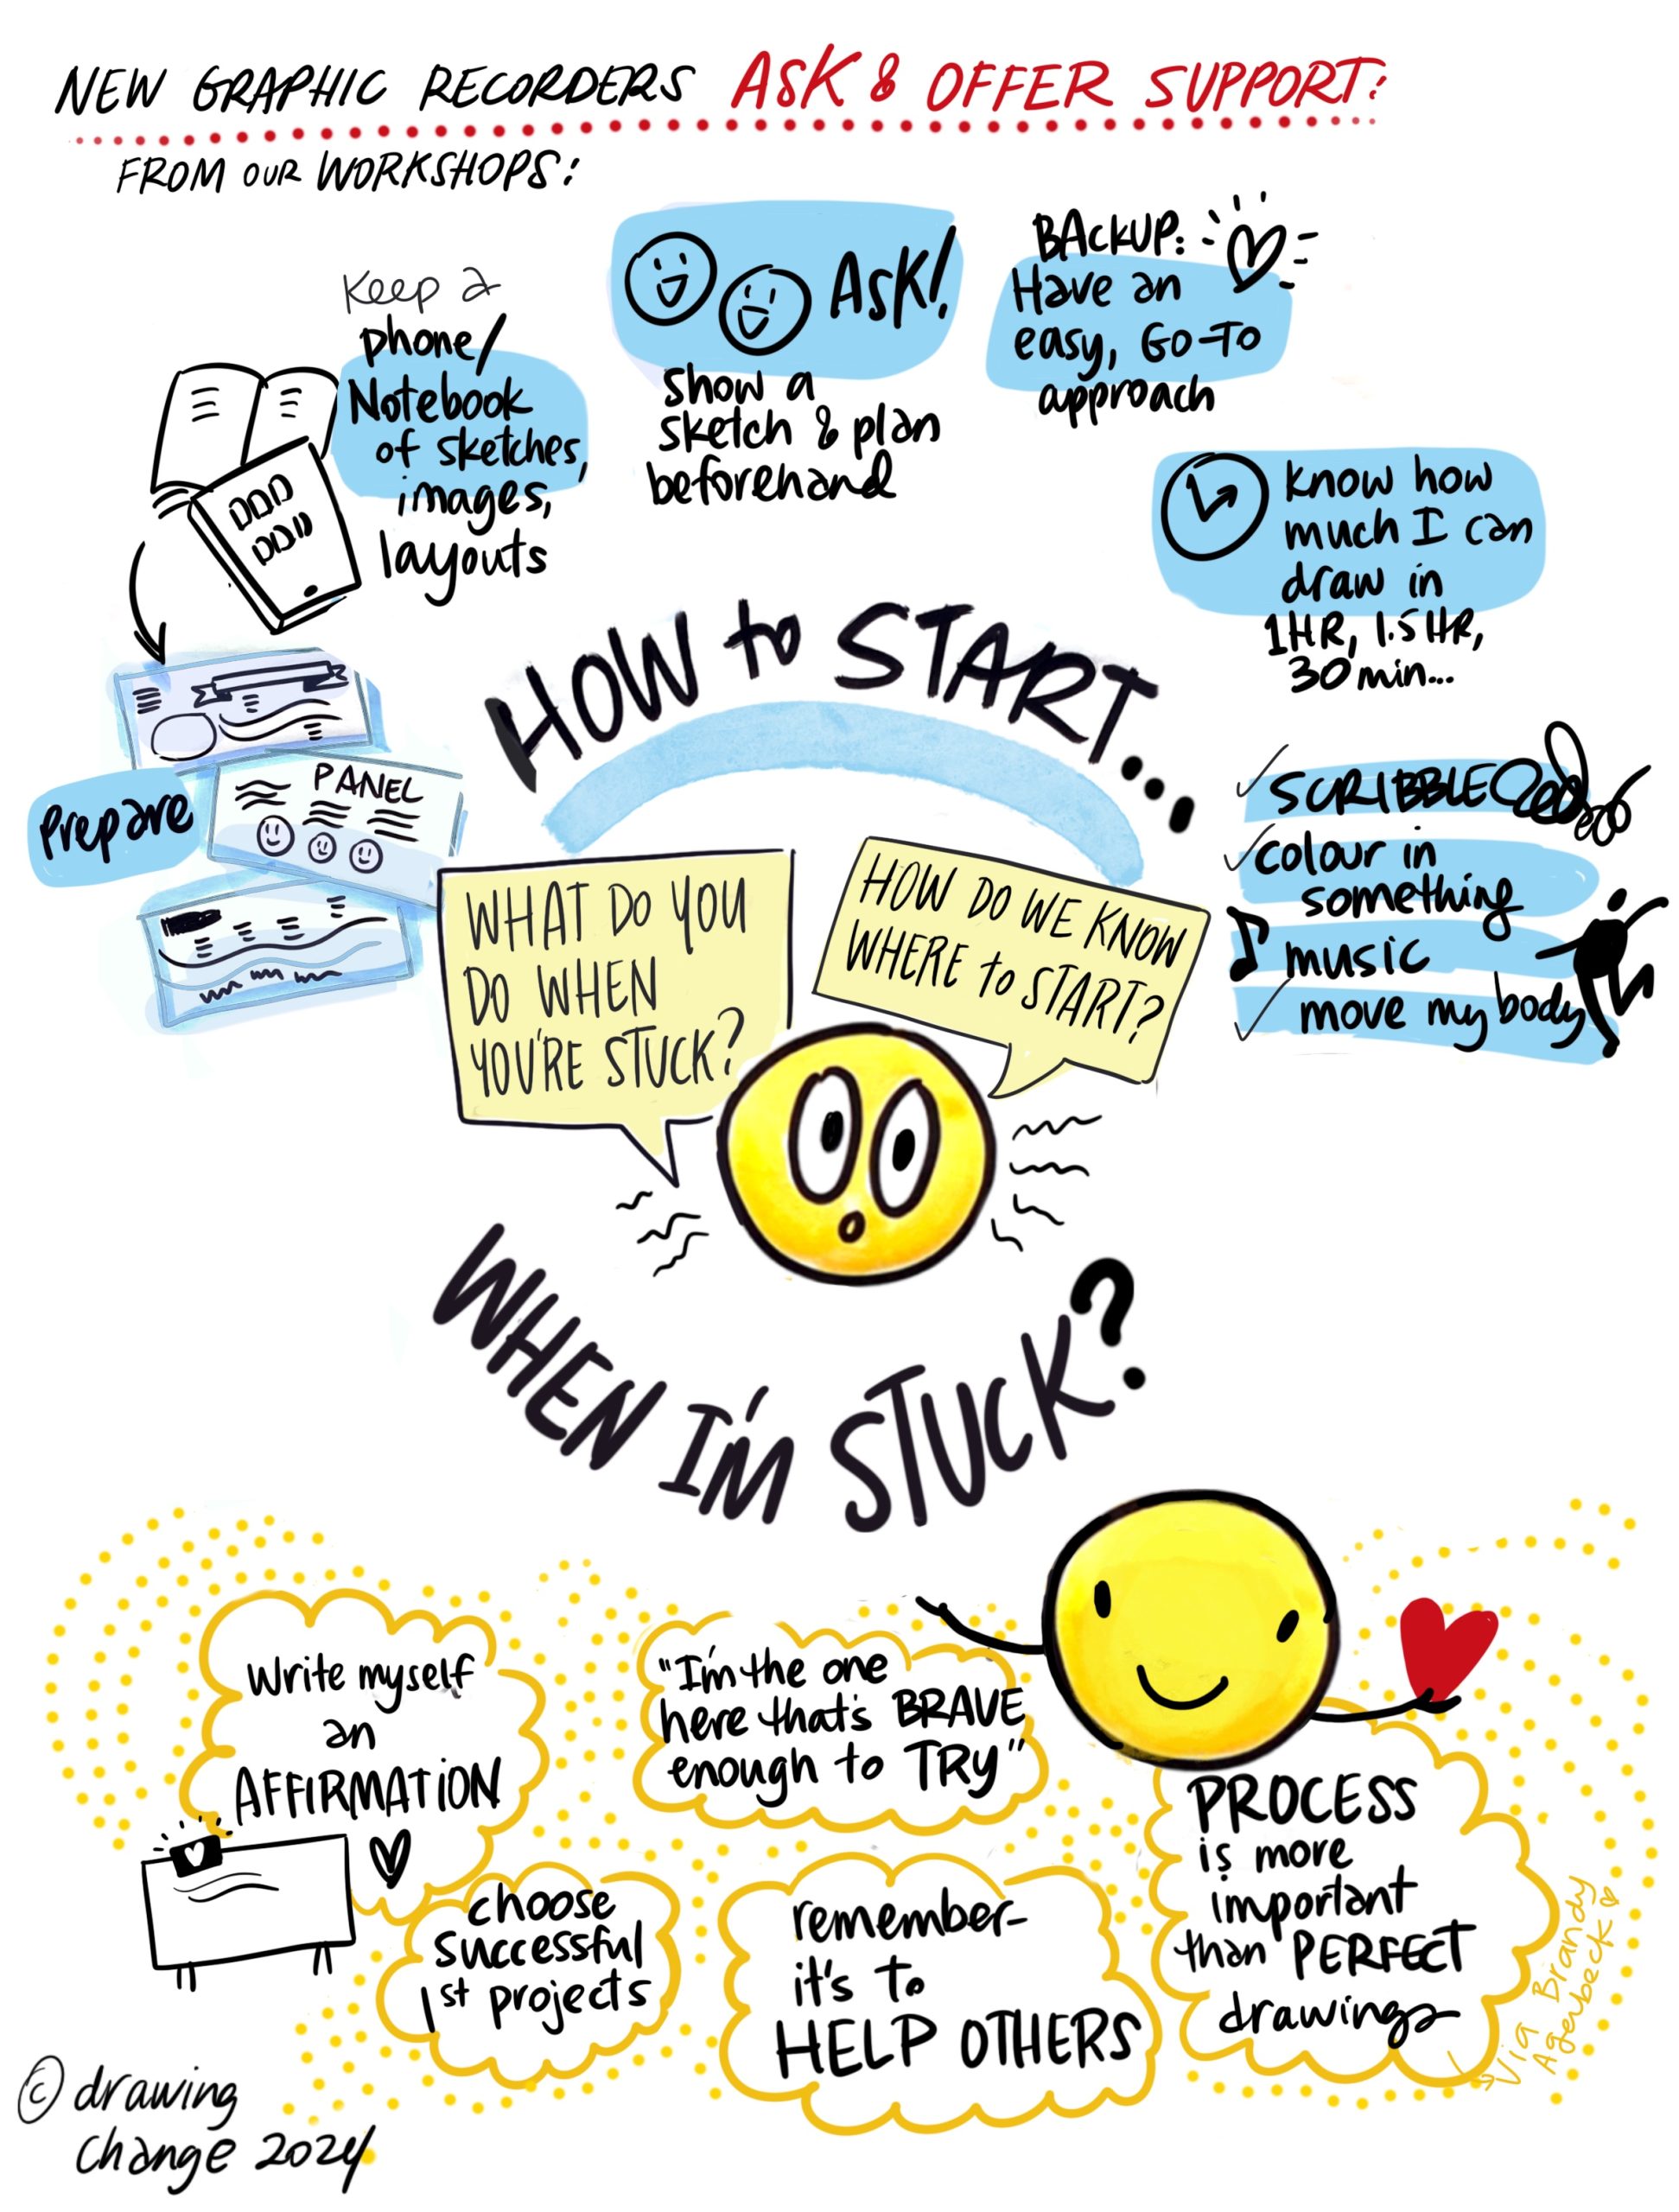 NEW GRAPHIC RECORDERS ASK & OFFER SUPPORT:
FROM OUR WORKSHOPS:
Keep a
phone/
Notebook
of sketches,
images,
layouts
Ask!
Show a
sketch & plan
beforehand
BACKUP:
Have an
easy, Go-To
approach
know how
much I can
draw in
1HR, 1.5 HR,
30 min...
Prepare
PANEL
HOW to START...
SCRIBBLE
colour in
something
music
move my body
WHAT DO YOU
DO WHEN
YOU'RE STUCK?
HOW DO WE KNOW
WHERE to START?
WHEN I'M STUCK?
Write myself
an
AFFIRMATION
"I'm the one
here that's BRAVE
enough to TRY"
choose
successful
1st projects
remember-
it's to
HELP OTHERS
PROCESS
is more
important
than PERFECT
drawings
Via Brandy
Agerbeck
© drawing
change 2024